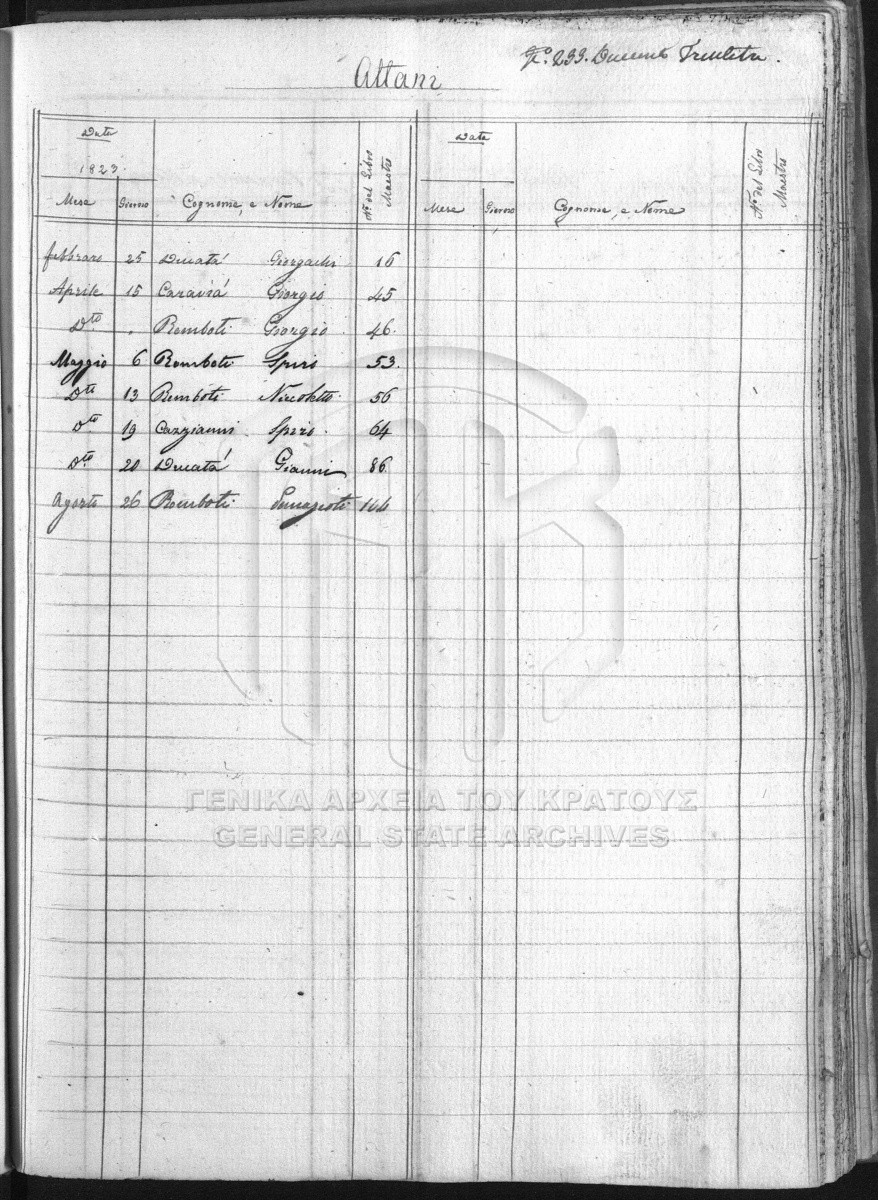 Fo. 233. Ducento Trentatre.
Attani
Data
1823.
Mese Giorno Cognome, e Nome No. del Libro Maestro
Data
Mese Giorno Cognome, e Nome No. del Libro Maestro
Febbraro 25 Ducatá Giorgachi 16
Aprile 15 Caraviá Giorgio 45
Dto " Romboti Giorgio 46.
Maggio 6 Romboti Spiro 53.
Dto 13 Romboti Niccoletto 56
Dto 19 Cazzianni Spiro. 64
Dto. 20 Ducatá Gianni 86.
Agosto 26 Romboti 144
ΓΕΝΙΚΑ ΑΡΧΕΙΑ ΤΟΥ ΚΡΑΤΟΥΣ
GENERAL STATE ARCHIVES